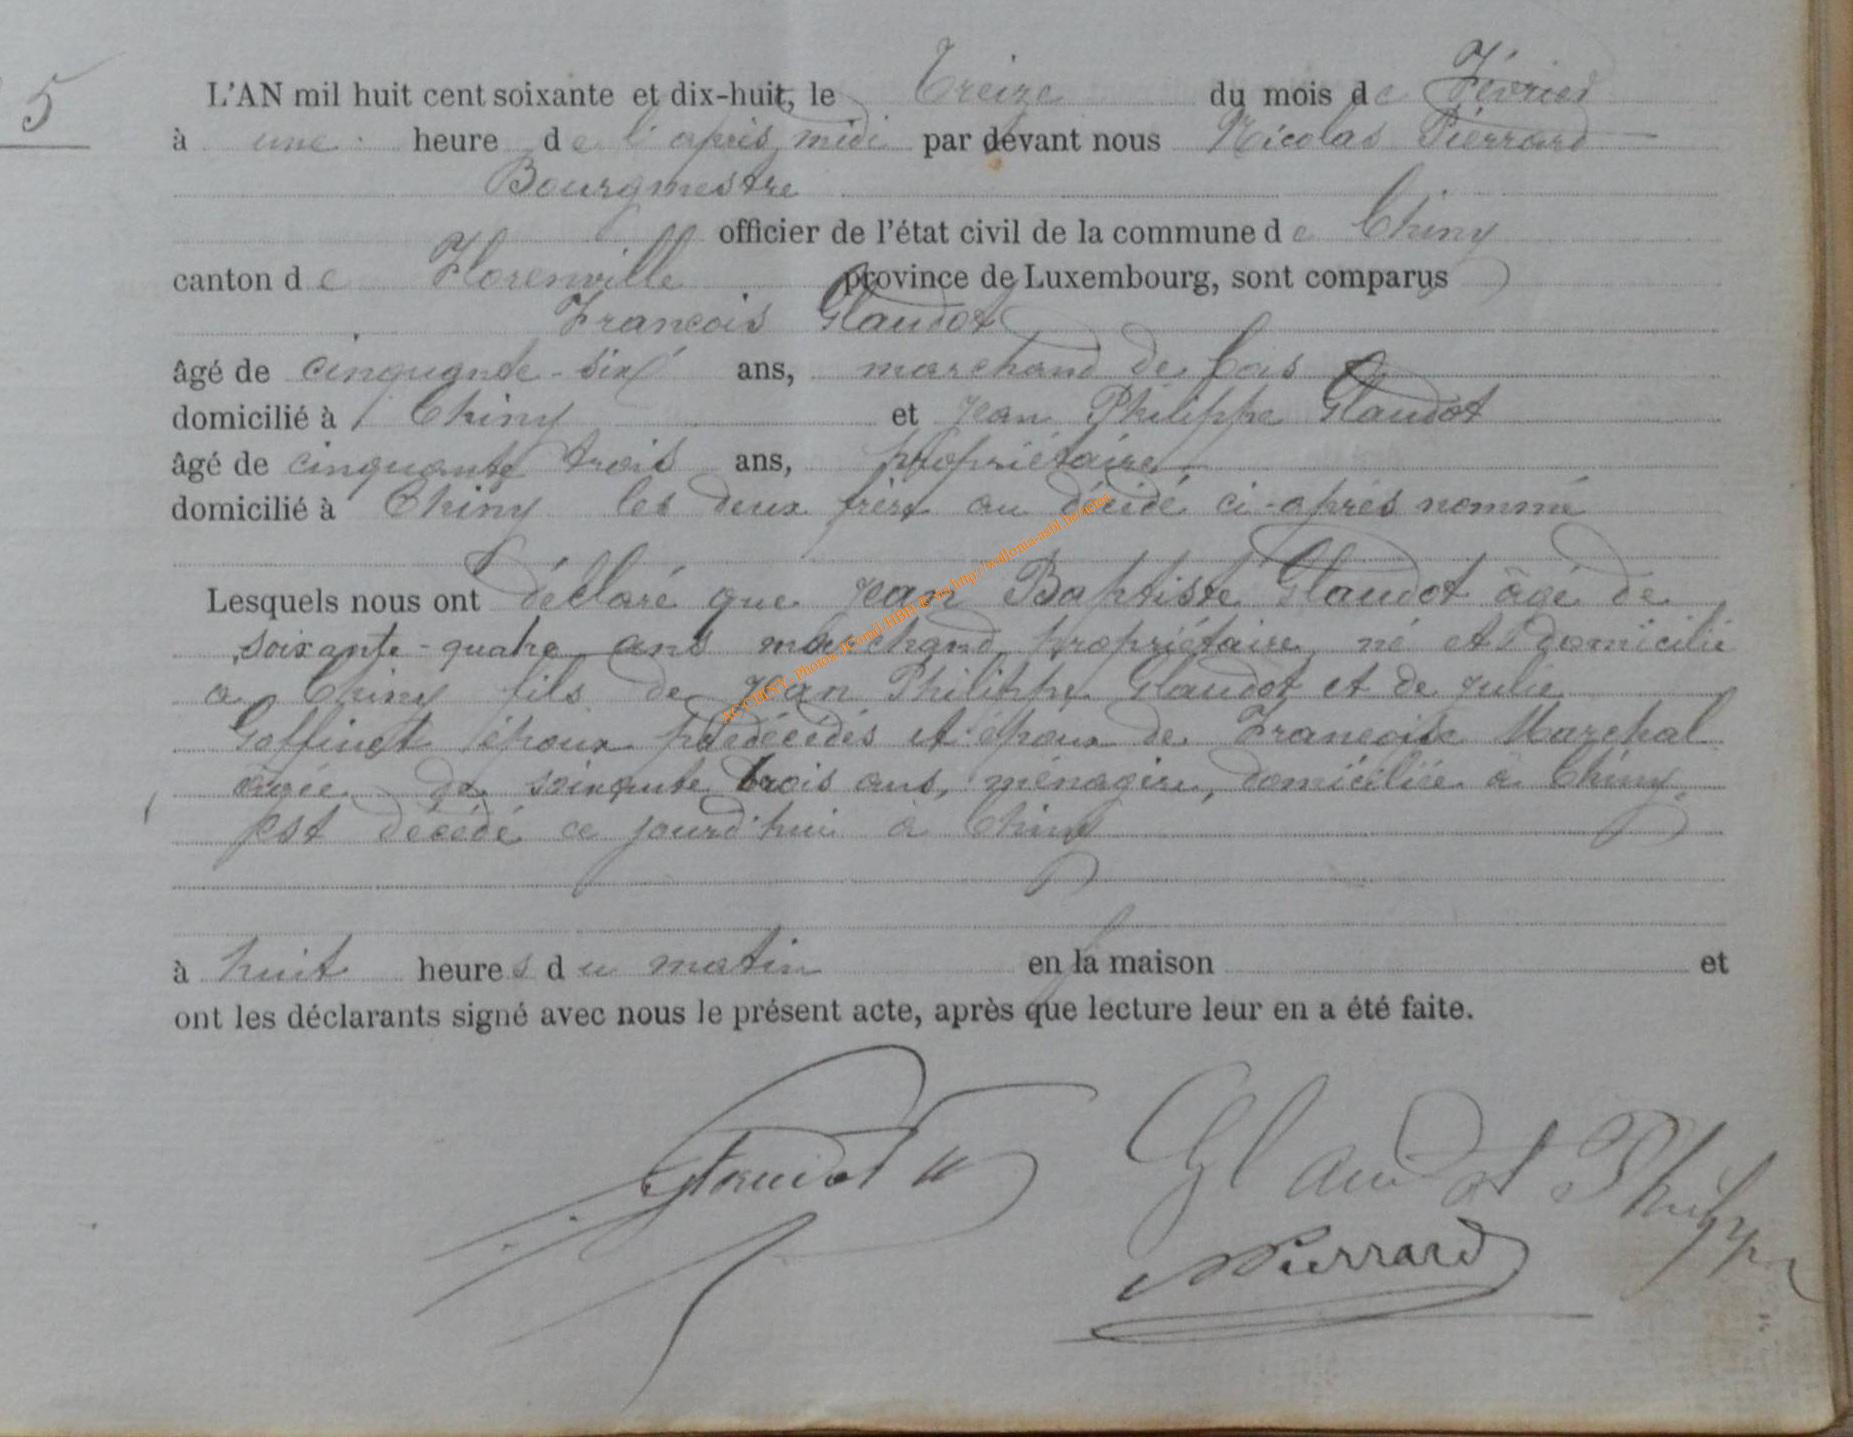 5
L'AN mil huit cent soixante et dix-huit, le Treize du mois de Février
à une heure de l'après midi par devant nous Nicolas Pierrard
Bourgmestre
officier de l'état civil de la commune de Chiny
canton de Florenville province de Luxembourg, sont comparus
François Glaudot
âgé de cinquante-six ans, marchand de bois
domicilié à Chiny et Jean Philippe Glaudot
âgé de cinquante trois ans, propriétaire
domicilié à Chiny les deux frère au décidé ci-après nommé
Lesquels nous ont déclaré que Jean Baptiste Glaudot âgé de
soixante-quatre ans marchand propriétaire né et domicilié
a Chiny fils de Jean Philippe Glaudot et de Julie
Goffinet époux prédécédés et époux de Françoise Marchal
âgée de soixante trois ans, ménagère, domiciliée à Chiny
est décédé ce jourd'hui à Chiny
à huit heures du matin en la maison et
ont les déclarants signé avec nous le présent acte, après que lecture leur en a été faite.
Glaudot Glaudot Philippe
NPierrard